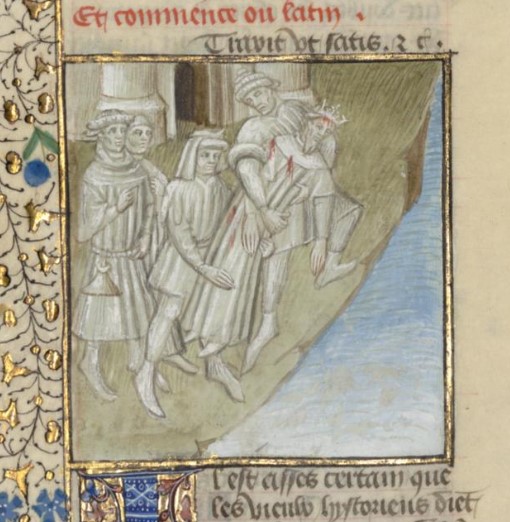 Et commence ou latin .
Trauit vt satis. ⁊ c̃.
l'est asses certain que
les vieulx hystoriens diēt